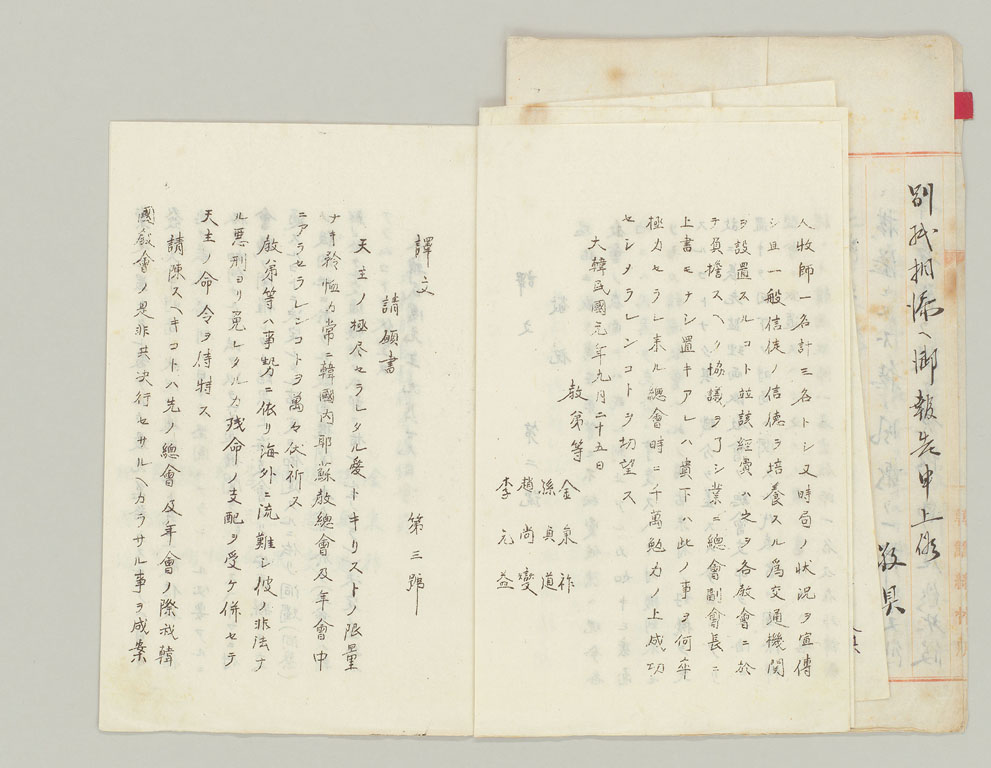 別紙相添ヘ御報告申上候
敬具
人牧師一名計三名トシ又時局ノ状況ヲ宣傳
シ且一般信徒ノ信德ヲ培養スル爲交通機関
ヲ設置スルコト並該経費ハ之ヲ各教會ニ於
テ負擔スヘク協議ヲ了シ業ニ總會副會長ニ
上書モナシ置キアレハ貴下ハ此ノ事ヲ何卒
極力セラレ来ル總會時ニ千萬勉力ノ上成功
セシメラレンコトヲ切望ス
大韓民國元年九月二十五日
教弟等
金東祚
孫貞道
趙尚燮
李元益
譯文 第三號
請願書
天主ノ極尽セラレタル愛トキリストノ限量
ナキ矜恤カ常ニ韓國内耶蘇教總會及年會中
ニアラセラレンコトヲ萬々伏祈ス
教弟等ハ事勢ニ依リ海外ニ流離シ彼ノ非法ナ
ル悪刑ヨリ免レタルカ残命ノ支配ヲ受ケ併セテ
天主ノ命令ヲ侍特ス
請陳スヘキコトハ先ノ總會及年會ノ際我韓
國教會ノ是非共決行セサルヘカラサル事ヲ成案